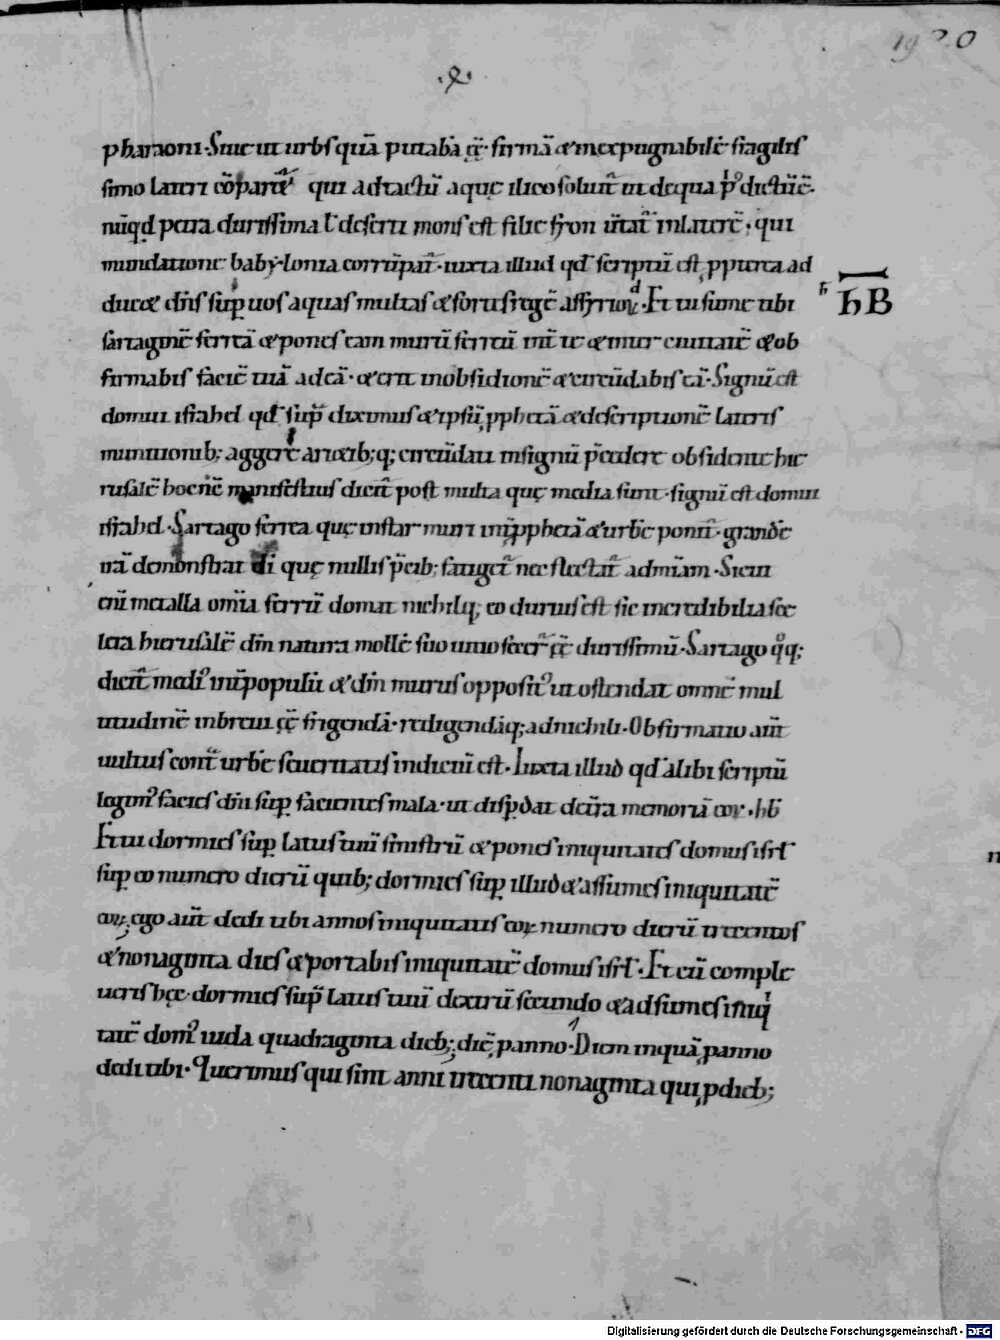 1920
·x·
pharaoni · Sicut urbs quā putabā ęē · firmā & inexpugnabilē fragilis
simo lateri cōparat̄ qui ad tactū aquę ilico soluit̄ ut de qua p̄ dictū ē
nūqd petra durissima l̄ deserti mons est filię syon
inundatione babylonia corrūpat̄ · iuxta illud qđ scriptū est, ppterea ad
ducet dn̄s sup uos aquas multas & fortis rege assyrioꝝ · Et tu sume tibi
sartaginē ferreā & pones eam murū ferreū int̄ te & int̄ ciuitatē & ob
firmabis faciē tuā ad eā · & erit in obsidionē & circūdabis eā · Signū est
domui israhel qđ sup diximus & ipsū pphetā & descriptionē lateris
munitionib; aggerē arietib; q; circūdati in signū p̄cedere obsidentę hie
rusalē hoc n̄c manifestius dicit̄ post multa quę media sunt · signū est domui
israhel · Sartago ferrea quę instar muri int̄ pphetā & urbē ponit̄ · grandē
irā demonstrat di quę nullis p̄cib; frangat̄ nec flectat̄ ad mīam · Sicut
enī metalla om̄ia ferrū domat nichilq; eo durius est sic incredibilia sce
lera hierusalē dn̄m natura mollē suo uitio fecer̄ ęē durissimū · Sartago q̊q;
dicit̄ media int̄ populū & dn̄m murus opposit⁹ ut ostendat omnē mul
titudinē in breui ęē frigendā · redigendāq; ad nichilū · Obfirmatio aūt
uultus cont̄ urbē seueritatis indiciū est · Iuxta illud qđ alibi scriptū
legim⁹ facies dn̄i sup facientes mala · ut disp̄dat de t̄ra memoriā eoꝝ · hB
Et tu dormies sup latus tuū sinistrū & pones iniquitates domus isrł
sup eo numero dierū quib; dormies sup illud & assumes iniquitatē
eoꝝ, ego aūt dedi tibi annos iniquitatis eoꝝ numero dierū trecentos
& nonaginta dies & portabis iniquitatē domus isrł · Et cū comple
ueris hęc · dormies sup latus tuū dextrū secundo & adsumes iniq̇
tatē dom⁹ iuda quadraginta dieb; diē p anno · Diem inquā p anno
dedi tibi · Querimus qui sint anni trecenti nonaginta qui p dieb;
hB
Digitalisierung gefördert durch die Deutsche Forschungsgemeinschaft - DFG